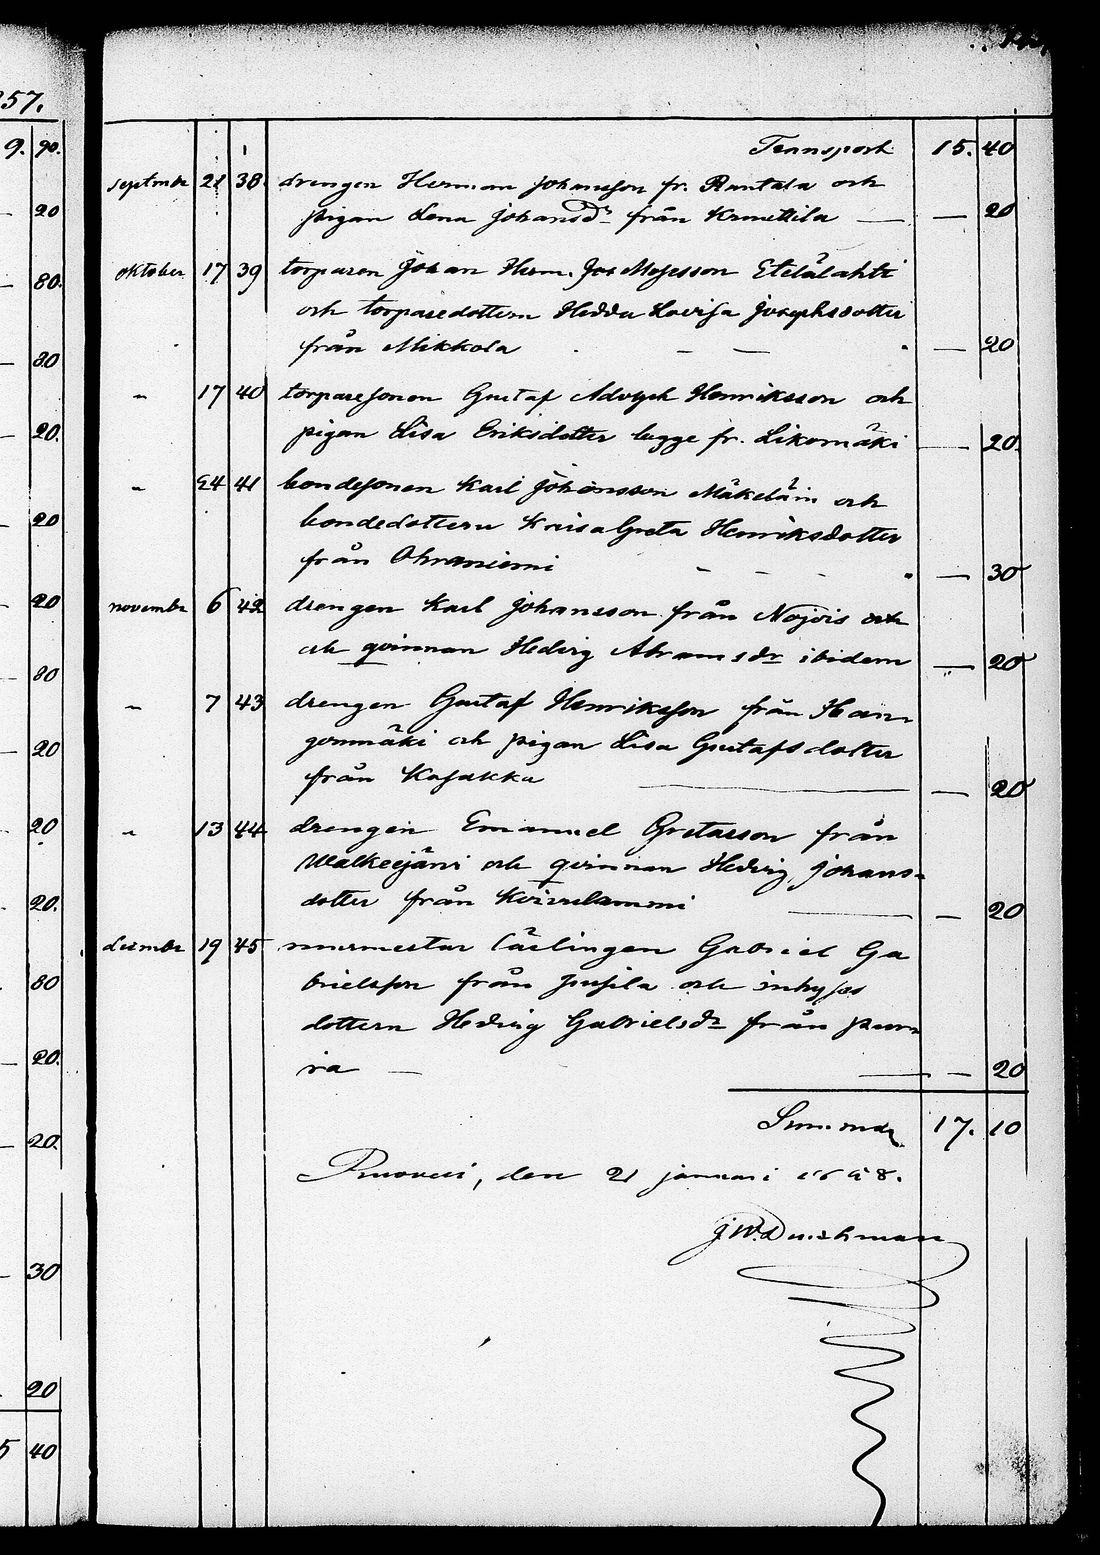 257.
9. 90.
20
80.
80
20.
20
20
80
20
20
20.
80
20.
20.
30
20
5 40
Transport 15. 40
september 21 38 drengen Herman Johansson fr. Rantala och
pigan Lena Johansdr från Krnettila — — 20
oktober 17 39 torparen Johan Herm. Jos Mosesson Etelälahti
och torparedottern Hedda Lovisa Josephsdotter
från Mikkola — — — 20
" 17 40 torparesonen Gustaf Adolph Henriksson och
pigan Lisa Eriksdotter begge fr. Likomäki — 20.
" 24 41 bondesonen Karl Johansson Mäkeläin och
bondedottern Kaisa Greta Henriksdotter
från Ohraniemi — — — 30
november 6 42 drengen Karl Johansson från Nojois och
och qvinnan Hedvig Abramsdr ibidem — 20
" 7 43 drengen Gustaf Henriksson från Han
gonmäki och pigan Lisa Gustafsdotter
från Kasakka — — 20
" 13 44 drengen Emanuel Gretasson från
Walkeejärvi och qvinnan Hedvig Johans-
dotter från — — 20
december 19 45 murmestar lärlingen Gabriel Ga
brielsson från Jusila och inhyses
dottern Hedvig Gabrielsdr från
— — — 20
Summa 17. 10
Ruovesi, den 21 januari 1858.
J W. Durchman